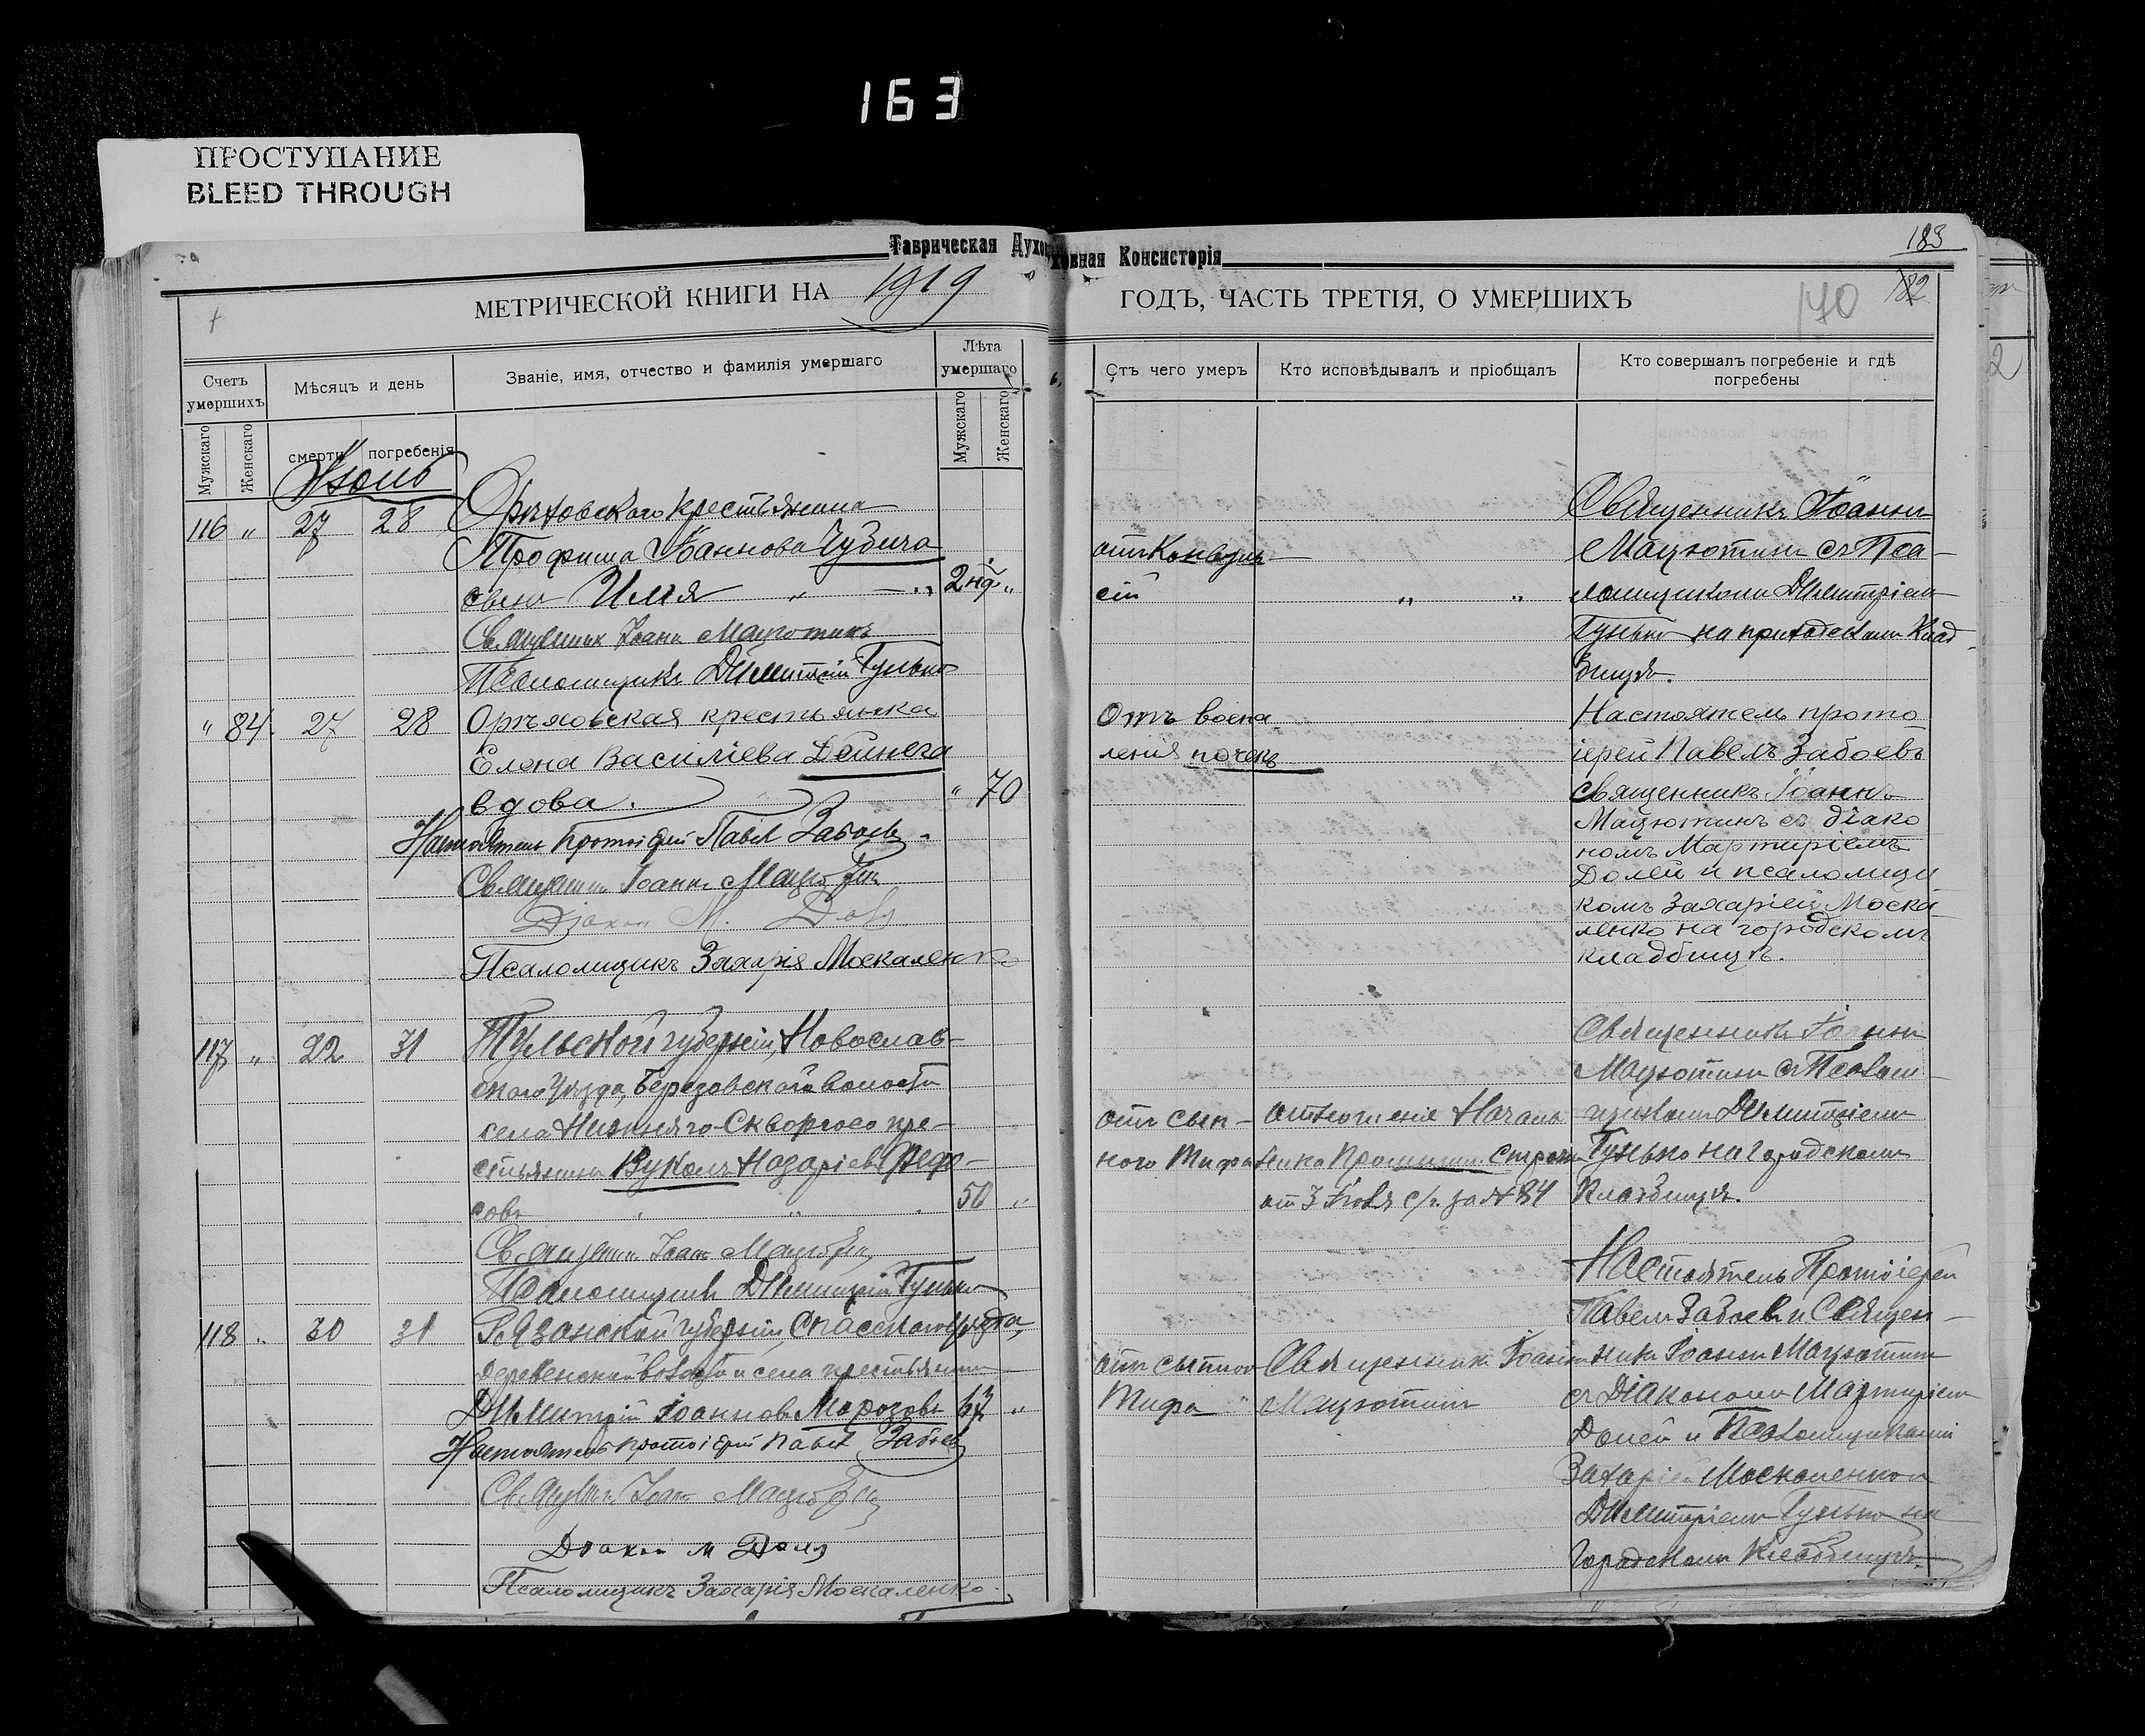 163
ПРОСТУПАНИЕ
BLEED THROUGH
Таврическая Духовная Консисторія
183
МЕТРИЧЕСКОЙ КНИГИ НА 1919 ГОДЪ, ЧАСТЬ ТРЕТІЯ, О УМЕРШИХЪ
170
182
Счетъ умершихъ
Мѣсяцъ и день
Званіе, имя, отчество и фамилія умершаго
Лѣта умершаго
Отъ чего умеръ
Кто исповѣдывалъ и пріобщалъ
Кто совершалъ погребеніе и гдѣ погребены
Мужскаго
Женскаго
смерти
погребенія
Мужскаго
Женскаго
116 " 27 28
Орѣховскаго крестьянина
Трофима Іоаннова Чубича
сынъ Илія " 2 нд. "
Священник Іоанн Мацютинъ
Псаломщикъ Димитрій Гунько
отъ Конвуль
сій
" "
Священникъ Іоаннъ
Мацютинъ съ Пса-
ломщикомъ Димитріемъ
Гунько на приходскомъ Клад
бищѣ.
" 84. 27 28
Орѣховская крестьянка
Елена Василіева Дейнега
вдова. " 70
Настоятель Протоіерей Павел Забоев.
Священник Іоанн Мацютин
Діакон М. Доля
Псаломщикъ Захарія Москаленко
Отъ воспа
ленія почекъ
Настоятель прото
іерей Павелъ Забоевъ
священникъ Іоаннъ
Мацютинъ съ діако
номъ Мартиріемъ
Долей и псаломщи
комъ Захаріей Моска
ленко на городскомъ
кладбищѣ.
117 " 22 31
Тульской губерніи, Новослав-
скаго уѣзда, Березовской волости
села Нижняго-Скворгово кре-
стьянинъ Вуколъ Назаріевъ
совъ 50 "
Священник Іоанн Мацютин
Псаломщикъ Димитрій Гунько
отъ сып-
ного Тифа
отношеніе Началь
ника
от 3 с/г. за № 84
Священникъ Іоаннъ
Мацютинъ съ Псалом-
щикомъ Димитріемъ
Гунько на городскомъ
Кладбищѣ.
118 " 30 31
Рязанской губерніи, Спасскаго уѣзда,
Деревенской волости и села крестьянинъ
Димитрій Іоанновъ Морозовъ 67 "
Настоятель протоіерей Павел Забоев
Священник Іоанн Мацютин
Діакон М Доля
Псаломщикъ Захарія Москаленко.
отъ сыпного
Тифа
Священникъ Іоаннъ
Мацютинъ
Настоятель Протоіерей
Павелъ Забоевъ и Священ-
никъ Іоаннъ Мацютинъ
съ Діакономъ Мартиріемъ
Долей и Псаломщиками
Захаріей Москаленко и
Димитріемъ Гунько на
Городскомъ Кладбищѣ.
2